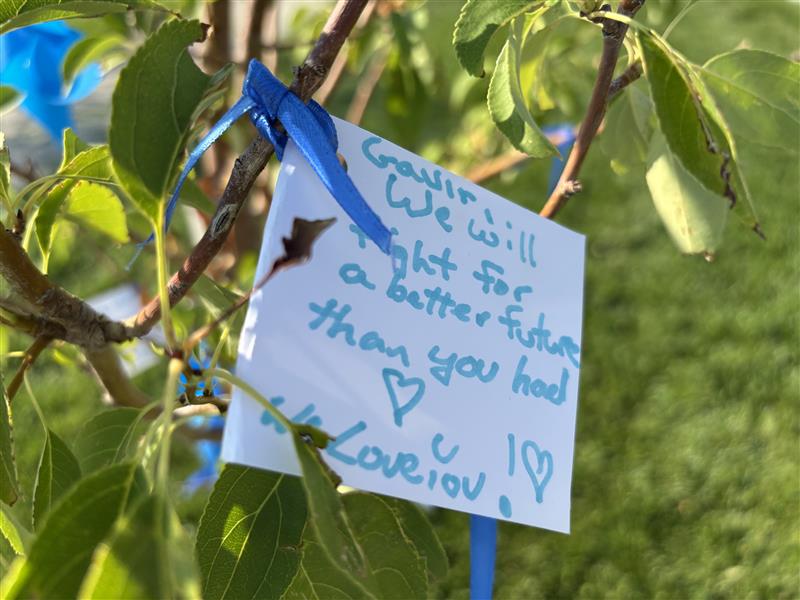 Gavin,
We will
fight for
a better future
than you had
We Love